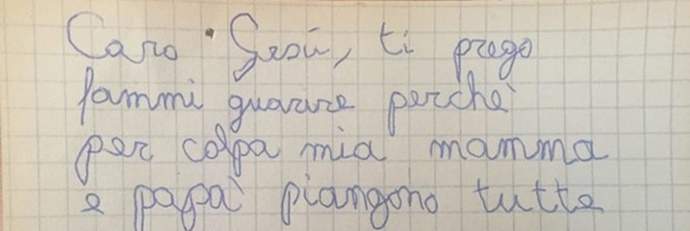 Caro Gesù, ti prego
fammi guarire perchè
per colpa mia mamma
e papà piangono tutte